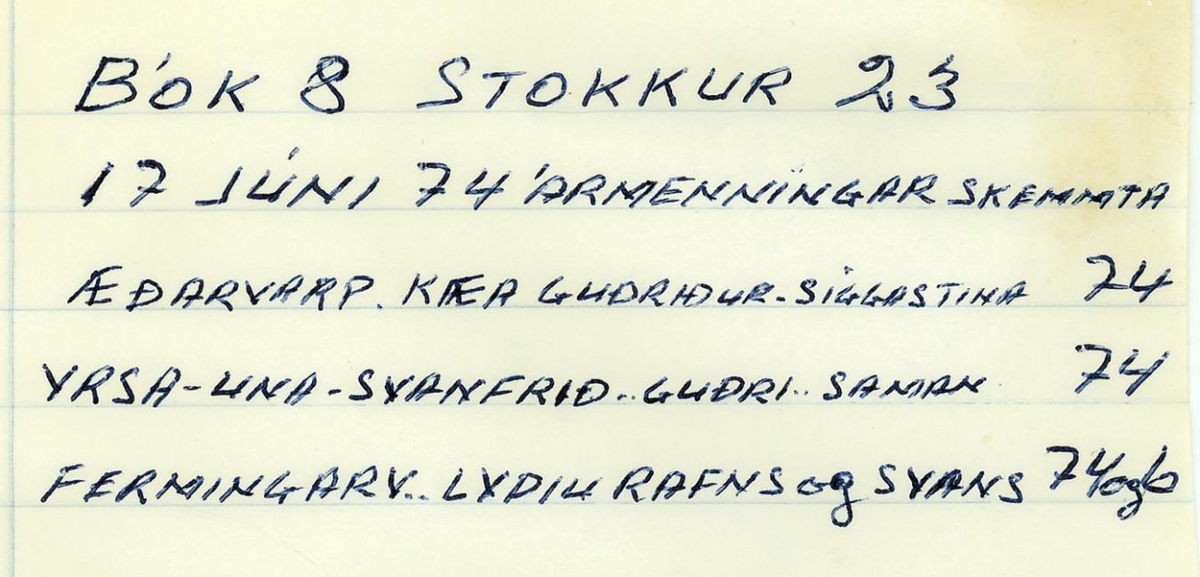 BÓK 8 STOKKUR 23
17 JÚNI 74 ÁRMENNÍNGAR SKEMMTA
ÆÐARVARP. KÆA GUÐRIÐUR-SIGGASTINA 74
YRSA-UNA-SVANFRIÐ.. GUÐRI.. SAMAN 74
FERMINGARV.. LYDIU RAFNS og SVANS 74og6